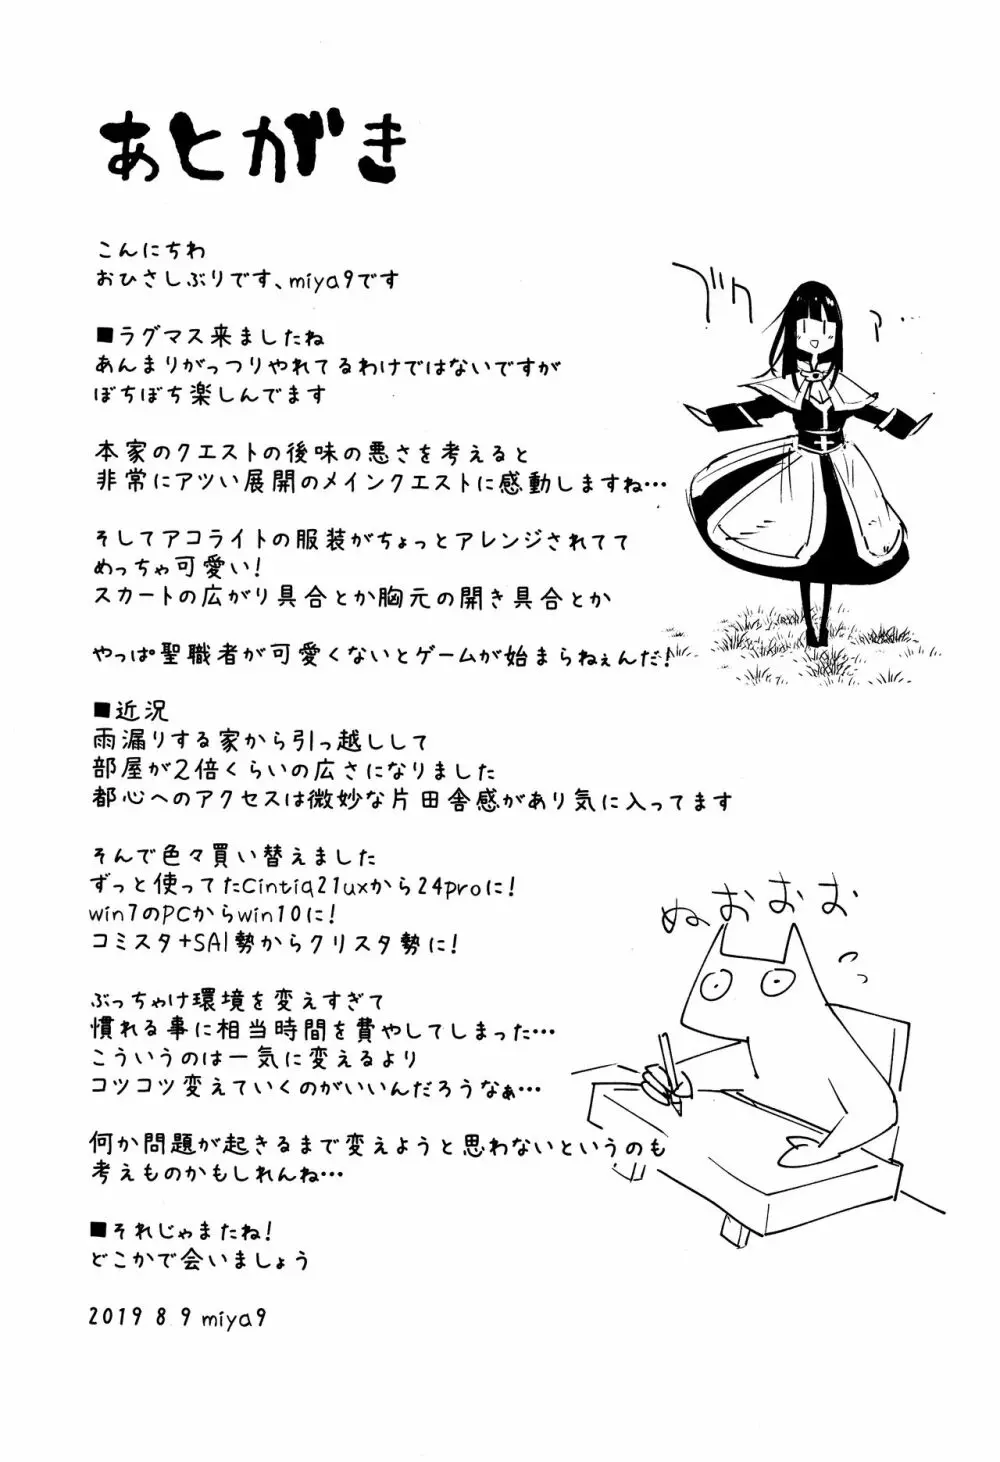 あとがき
こんにちわ
おひさしぶりです、miya9です
■ラグマス来ましたね
あんまりがっつりやれてるわけではないですが
ぼちぼち楽しんでます
本家のクエストの後味の悪さを考えると
非常にアツい展開のメインクエストに感動しますね…
そしてアコライトの服装がちょっとアレンジされてて
めっちゃ可愛い!
スカートの広がり具合とか胸元の開き具合とか
やっぱ聖職者が可愛くないとゲームが始まらねぇんだ!
■近況
雨漏りする家から引っ越しして
部屋が2倍くらいの広さになりました
都心へのアクセスは微妙な片田舎感があり気に入ってます
そんで色々買い替えました
ずっと使ってたCintiq21uxから24proに!
win7のPCからwin10に!
コミスタ+SAI勢からクリスタ勢に!
ぬおおむむ
ぶっちゃけ環境を変えすぎて
慣れる事に相当時間を費やしてしまった…
こういうのは一気に変えるより
コツコツ変えていくのがいいんだろうなぁ…
何か問題が起きるまで変えようと思わないというのも
考えものかもしれんね…
■それじゃまたね!
どこかで会いましょう
2019 8 9 miya9